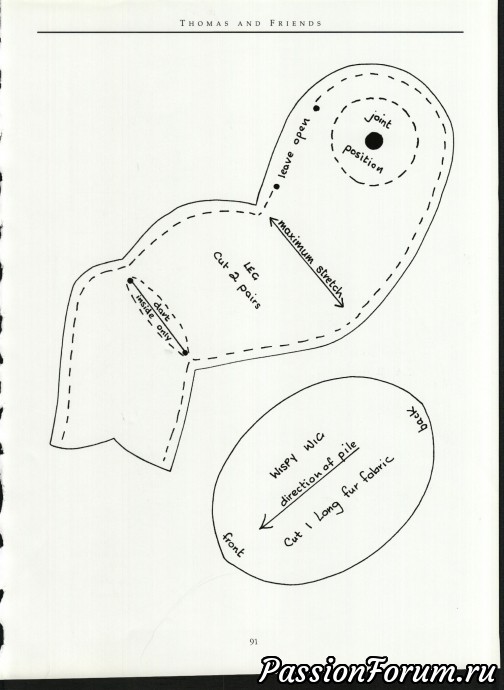 THOMAS AND FRIENDS
joint
position
leave open
maximum stretch
LEG
Cut 2 pairs
dart
inside only
back
WISPY WIG
direction of pile
Cut 1 Long fur fabric
front
91
PassionForum.ru